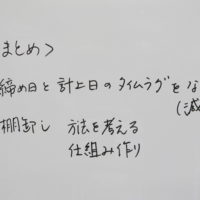 まとめ>
締め日と計上日のタイムラグをな
(減
棚卸し 方法を考える
仕組み作り